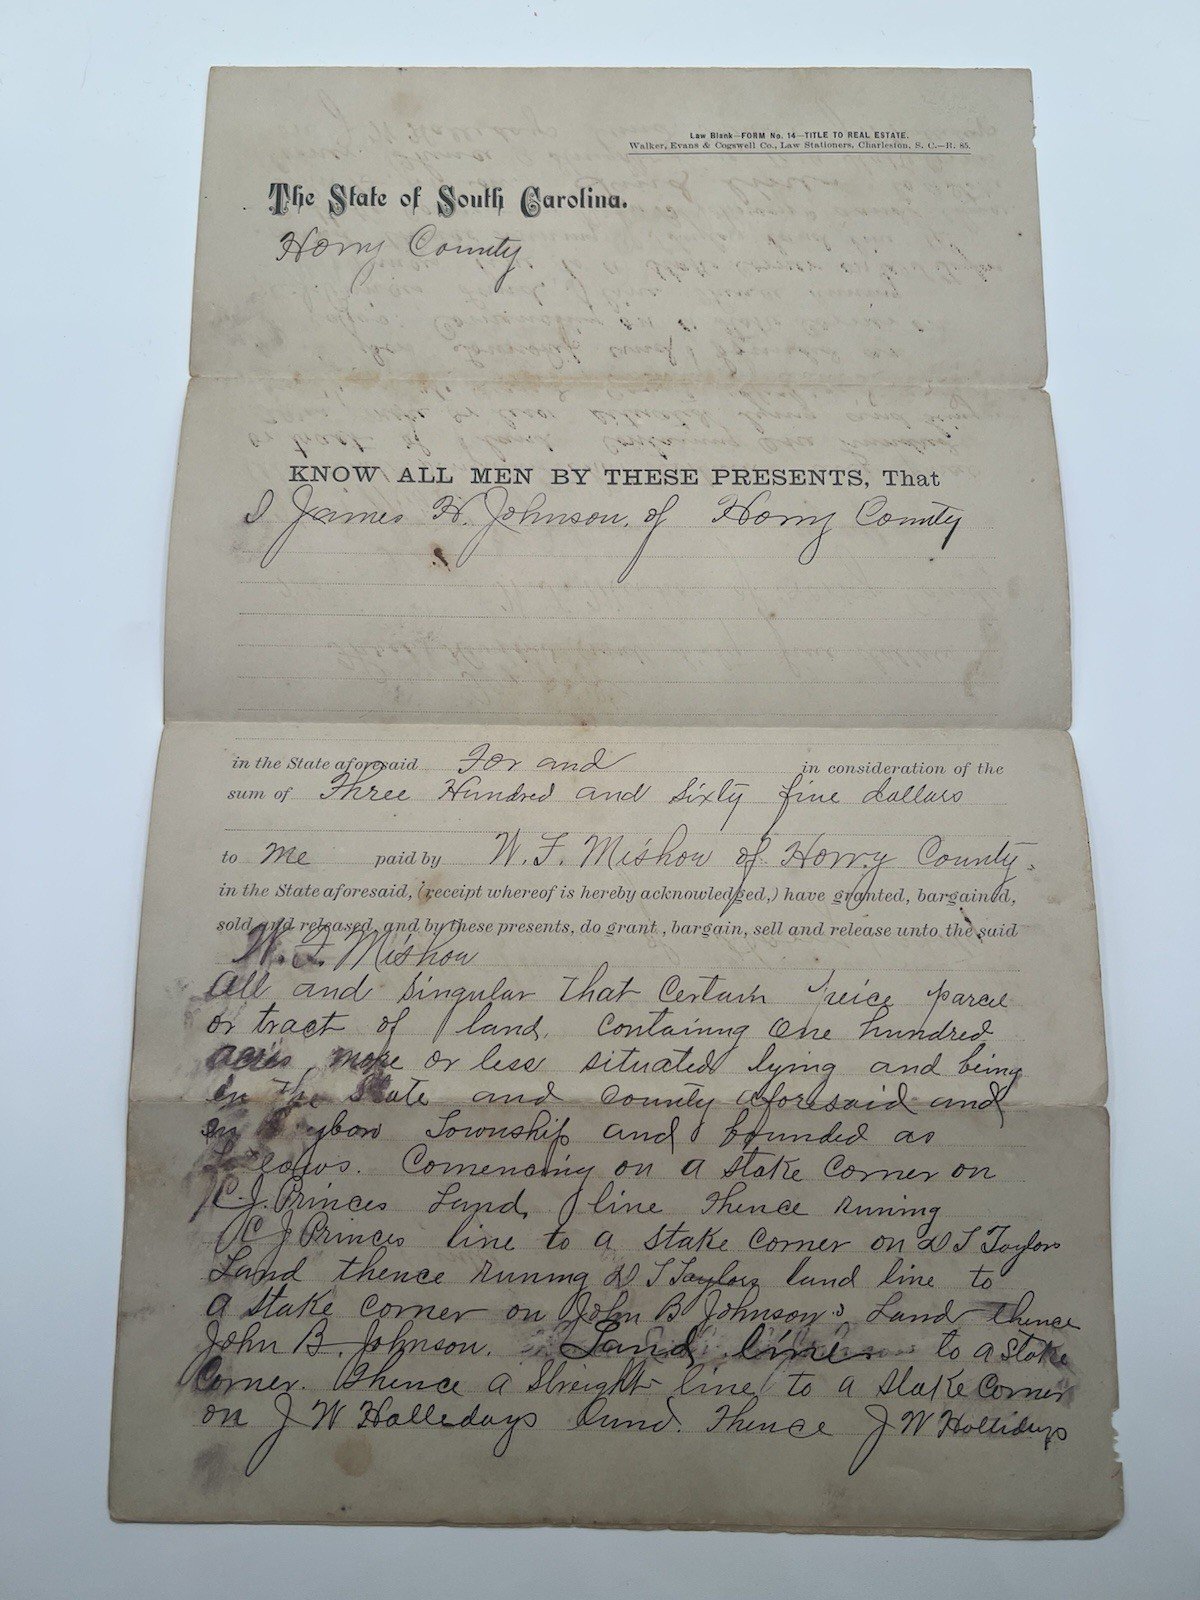 Law Blank—FORM No. 14—TITLE TO REAL ESTATE.
Walker, Evans & Cogswell Co., Law Stationers, Charleston, S. C.—R. 85.
The State of South Carolina.
Horry County
KNOW ALL MEN BY THESE PRESENTS, That
I James H. Johnson, of Horry County
in the State aforesaid For and in consideration of the
sum of Three Hundred and Sixty five dollars
to me paid by W. F. Mishow of Horry County,
in the State aforesaid, (receipt whereof is hereby acknowledged,) have granted, bargained,
sold and released, and by these presents, do grant, bargain, sell and release unto the said
W. F. Mishow
all and singular that certain peice parcel
or tract of land, containing one hundred
acres more or less situated lying and being
in the State and county aforesaid and
in Township and bounded as
Comencing on a stake corner on
C. J. Princes Land, line thence runing
C J Princes line to a stake corner on D T Taylors
Land thence runing D T Taylors land line to
a stake corner on John B Johnson's Land thence
John B. Johnson. Land line to a stake
corner. Thence a streight line to a stake corner
on J W Hollidays land. Thence J W Hollidays